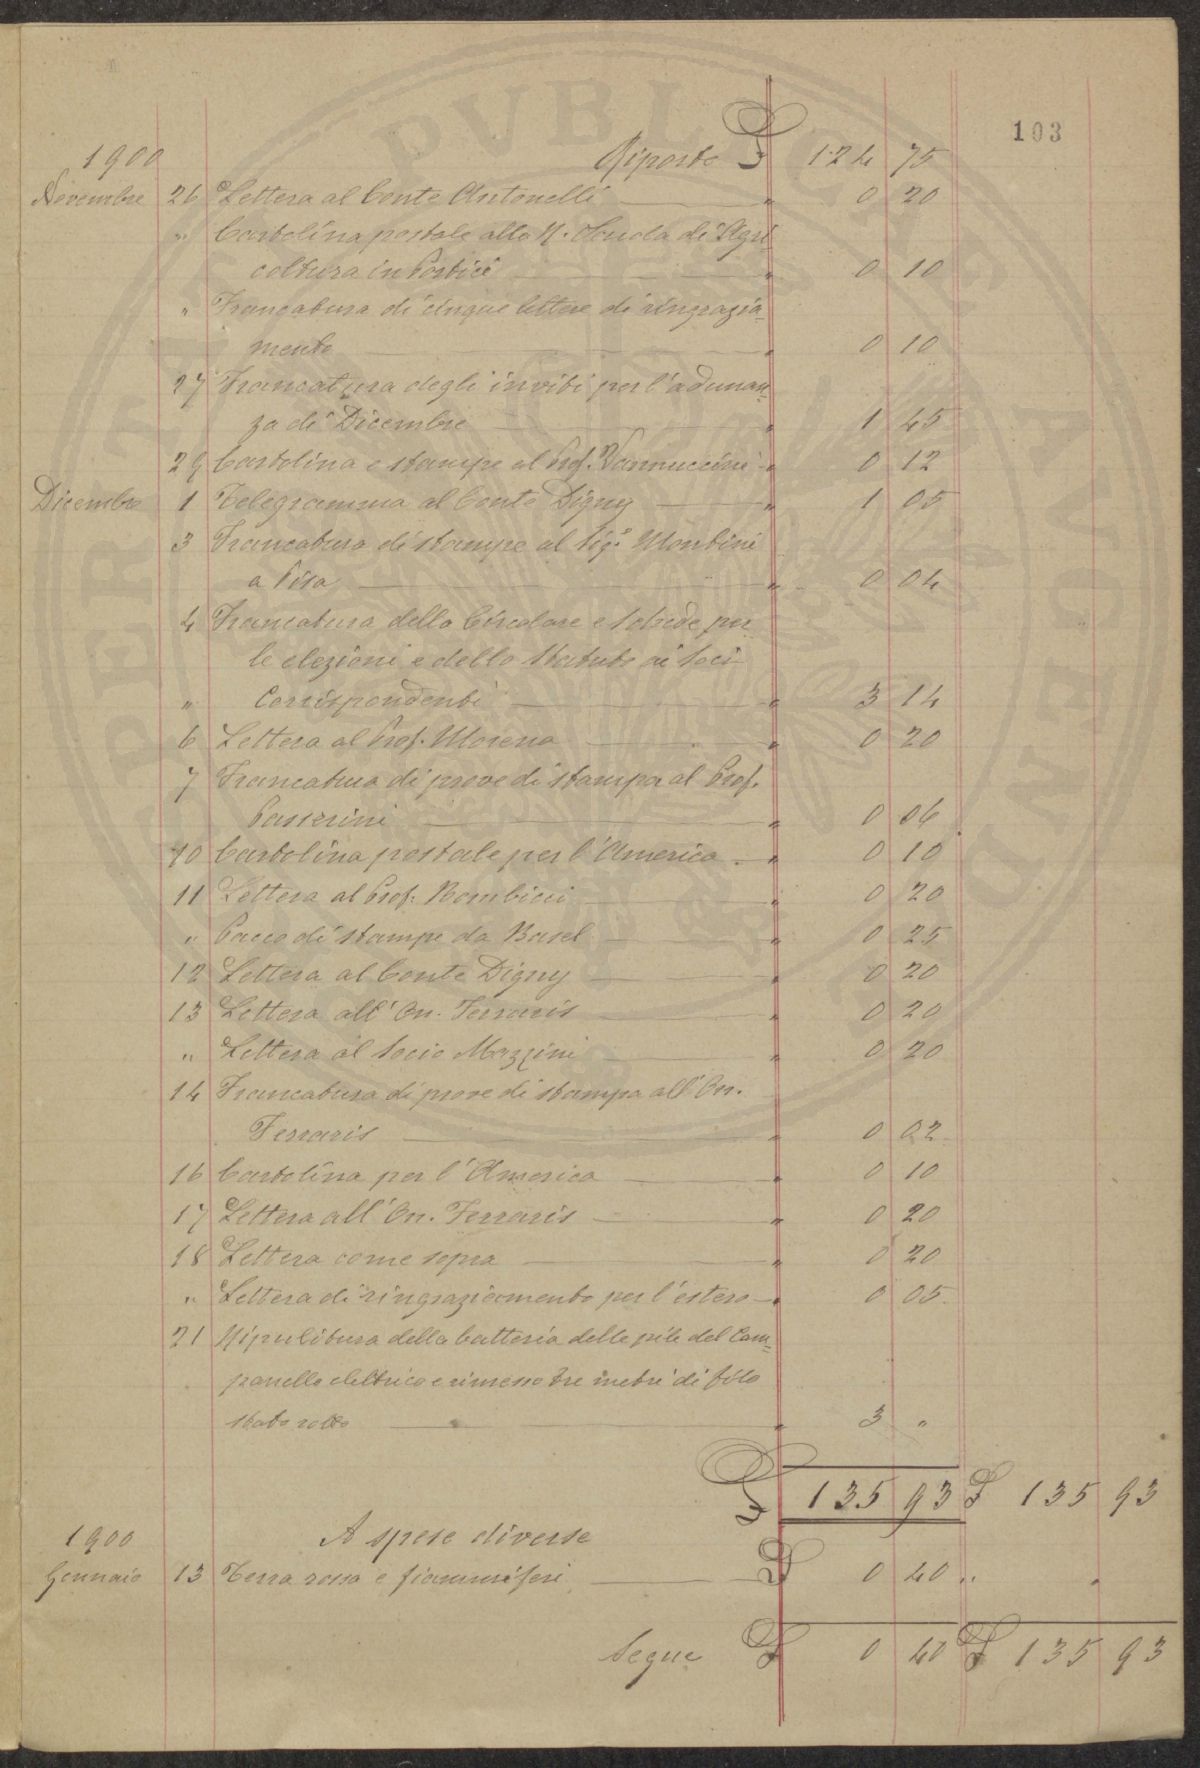 PVBLICAE
103
1900 Riporto £ 124 75
Novembre 26 Lettera al Conte Antonelli " 0 20
" Cartolina postale alla R. Scuola di Agri
coltura in Portici " 0 10
" Francatura di cinque lettere di ringrazia-
mento " 0 10
27 Francatura degli inviti per l'adunan-
za di Dicembre " 1 45
29 Cartolina e stampe al Prof. Vannuccini " 0 12
Dicembre 1 Telegramma al Conte Digny " 1 05
3 Francatura di stampe al Sig.r Montini
a Pisa " 0 04
4 Francatura della Circolare e schede per
le elezioni e dello Statuto ai Soci
" Corrispondenti " 3 14
6 Lettera al Prof. Morena " 0 20
7 Francatura di prove di stampa al Prof.
Passerini " 0 06
10 Cartolina postale per l'America " 0 10
11 Lettera al Prof. Bombicci " 0 20
" Pacco di stampe da Basel " 0 25
12 Lettera al Conte Digny " 0 20
13 Lettera all'On. Ferraris " 0 20
" Lettera al Socio Mazzini " 0 20
14 Francatura di prove di stampa all'On.
Ferraris " 0 02
16 Cartolina per l'America " 0 10
17 Lettera all'On. Ferraris " 0 20
18 Lettera come sopra " 0 20
" Lettera di ringraziamento per l'estero " 0 05
21 Ripulitura della batteria delle pile del Cam-
panello elettrico e rimesso tre metri di filo
stato rotto " 3 "
£ 135 93 £ 135 93
1900 A spese diverse
Gennaio 13 Terra rossa e fiammiferi £ 0 40 " "
Segue £ 0 40 £ 135 93